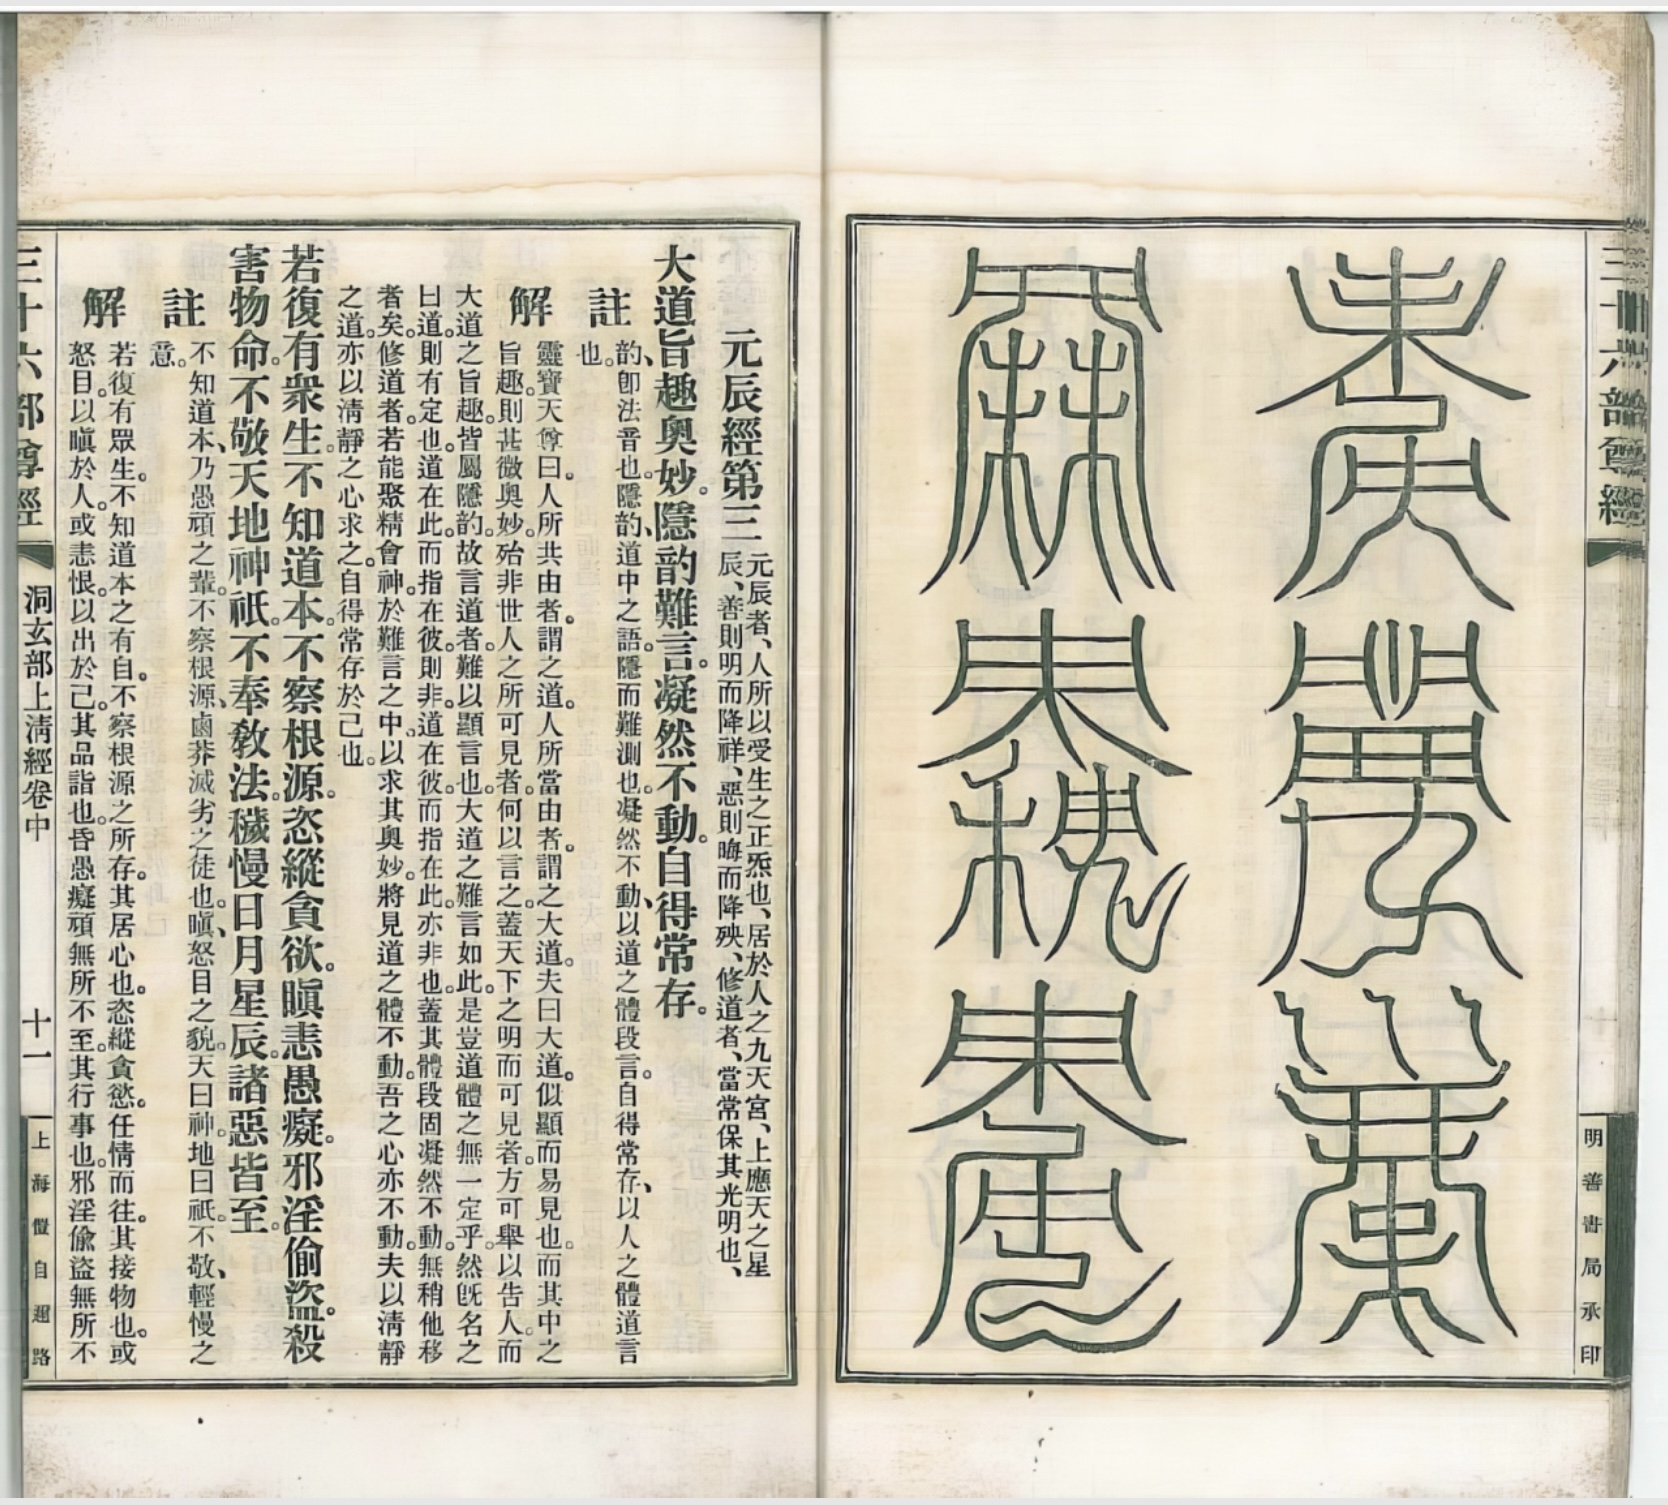 三十六部尊經
明善書局承印
元辰經第三
元辰者、人所以受生之正炁也、居於人之九天宮、上應天之星
辰、善則明而降祥、惡則晦而降殃、修道者、當常保其光明也、
大道旨趣奧妙。隱韵難言。凝然不動。自得常存。
註
韵、卽法音也。隱韵、道中之語。隱而難測也。凝然不動、以道之體段言。自得常存、以人之體道言
也。
解
靈寶天尊曰。人所共由者。謂之道。人所當由者。謂之大道。夫曰大道。似顯而易見也。而其中之
旨趣。則甚微奧妙。殆非世人之所可見者。何以言之。蓋天下之明而可見者。方可舉以告人。而
大道之旨趣。皆屬隱韵。故言道者。難以顯言也。大道之難言如此。是豈道體之無一定乎。然旣名之
曰道。則有定也。道在此。而指在彼。則非。道在彼。而指在此。亦非也。蓋其體段固凝然不動。無稍他移
者矣。修道者。若能聚精會神。於難言之中。以求其奧妙。將見道之體不動。吾之心亦不動。夫以清靜
之道。亦以清靜之心求之。自得常存於己也。
若復有衆生。不知道本。不察根源。恣縱貪欲。瞋恚愚癡。邪淫偷盜。殺
害物命。不敬天地神祇。不奉敎法。穢慢日月星辰。諸惡皆至。
註
不知道本、乃愚頑之輩。不察根源、鹵莽滅劣之徒也。瞋、怒目之貌。天曰神。地曰祇。不敬、輕慢之
意。
解
若復有眾生。不知道本之有自。不察根源之所存。其居心也。恣縱貪慾。任情而往。其接物也。或
怒目。以瞋於人。或恚恨。以出於己。其品詣也。昏愚癡頑。無所不至。其行事也。邪淫偷盜。無所不
三十六部尊經
洞玄部上淸經卷中
十一
上海慢自邇路